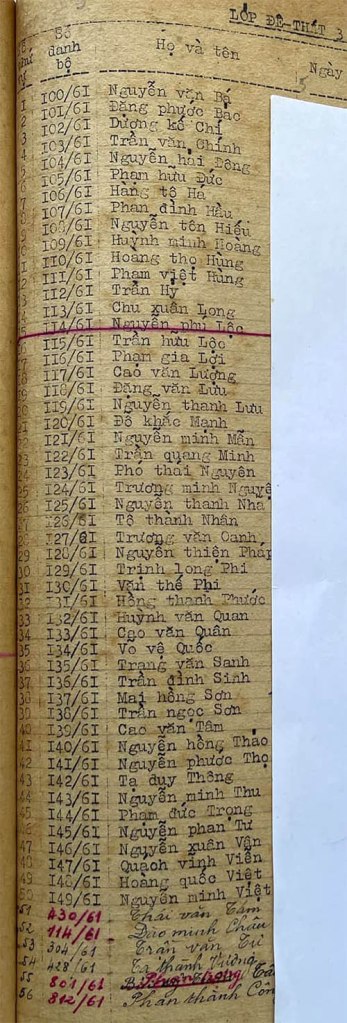 LỚP ĐỆ-THẤT 3
Số danh bộ Họ và tên Ngày
100/61 Nguyễn văn Bá
101/61 Đặng phước Bảo
102/61 Dương kế Chí
103/61 Trần văn Chính
104/61 Nguyễn hải Đông
105/61 Phạm hưu Đức
106/61 Hàng tô Hà
107/61 Phan đình Hầu
108/61 Nguyễn tôn Hiếu
109/61 Huỳnh minh Hoàng
110/61 Hoàng thọ Hùng
111/61 Phạm việt Hùng
112/61 Trần Hỷ
113/61 Chu xuân Long
114/61 Nguyễn phu Lộc
115/61 Trần hưu Lộc
116/61 Phạm gia Lợi
117/61 Cao văn Lượng
118/61 Đặng văn Lưu
119/61 Nguyễn thanh Lưu
120/61 Đỗ khắc Mạnh
121/61 Nguyễn minh Mẫn
22 122/61 Trần quang Minh
23 123/61 Phó thái Nguyên
24 124/61 Trương minh Nguyệ
25 125/61 Nguyễn thanh Nhã
126/61 Tô thành Nhân
127/61 Trương văn Oanh
128/61 Nguyễn thiện Pháp
29 129/61 Trịnh long Phi
30 130/61 Văn thế Phi
131/61 Hồng thanh Phước
132/61 Huỳnh văn Quan
33 133/61 Cao văn Quân
34 134/61 Vo vệ Quốc
35 135/61 Trang văn Sanh
36 136/61 Trần đình Sinh
37 137/61 Mai hồng Sơn
38 138/61 Trần ngọc Sơn
139/61 Cao văn Tâm
140/61 Nguyễn hồng Thảo
141/61 Nguyễn phước Thọ
142/61 Tạ duy Thông
143/61 Nguyễn minh Thu
144/61 Phạm đức Trọng
145/61 Nguyễn phan Tư
146/61 Nguyễn xuân Vân
147/61 Quách vinh Viễn
148/61 Hoàng quốc Việt
149/61 Nguyễn minh Việt
51 430/61 Thái văn Tám
52 114/61 Đào minh Châu
53 304/61 Trần văn Tử
54 428/61 Tạ thành Vương
55 801/61
56 812/61 Phan thành Côn